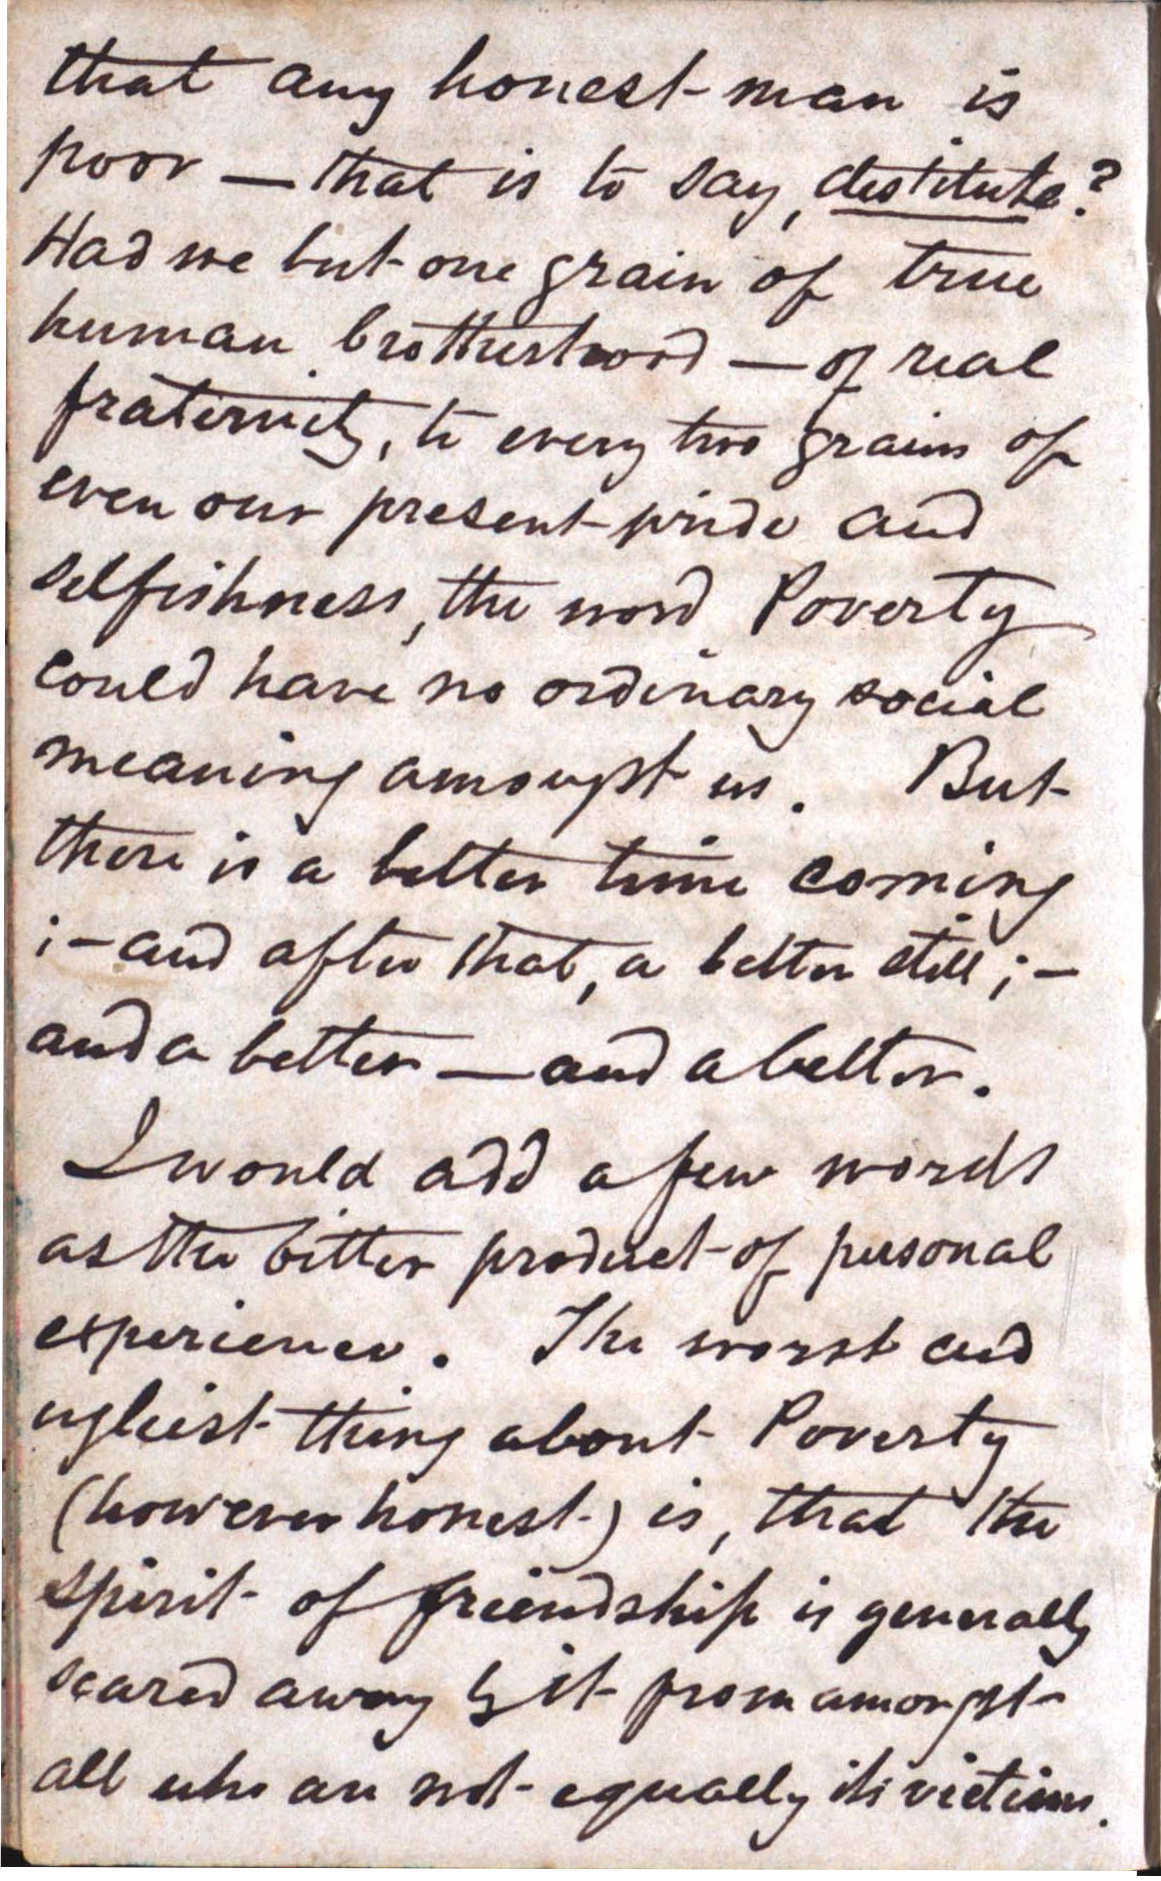 that any honest man is
poor — that is to say, destitute?
Had we but one grain of true
human brotherhood — of real
fraternity, to every two grains of
even our present pride and
selfishness, the word Poverty
could have no ordinary social
meaning amongst us. But
there is a better time coming
;— and after that, a better still ;—
and a better — and a better.
I would add a few words
as the bitter product of personal
experience. The worst and
ugliest thing about Poverty
(however honest) is, that the
spirit of friendship is generally
scared away by it from amongst
all who are not equally its victims.